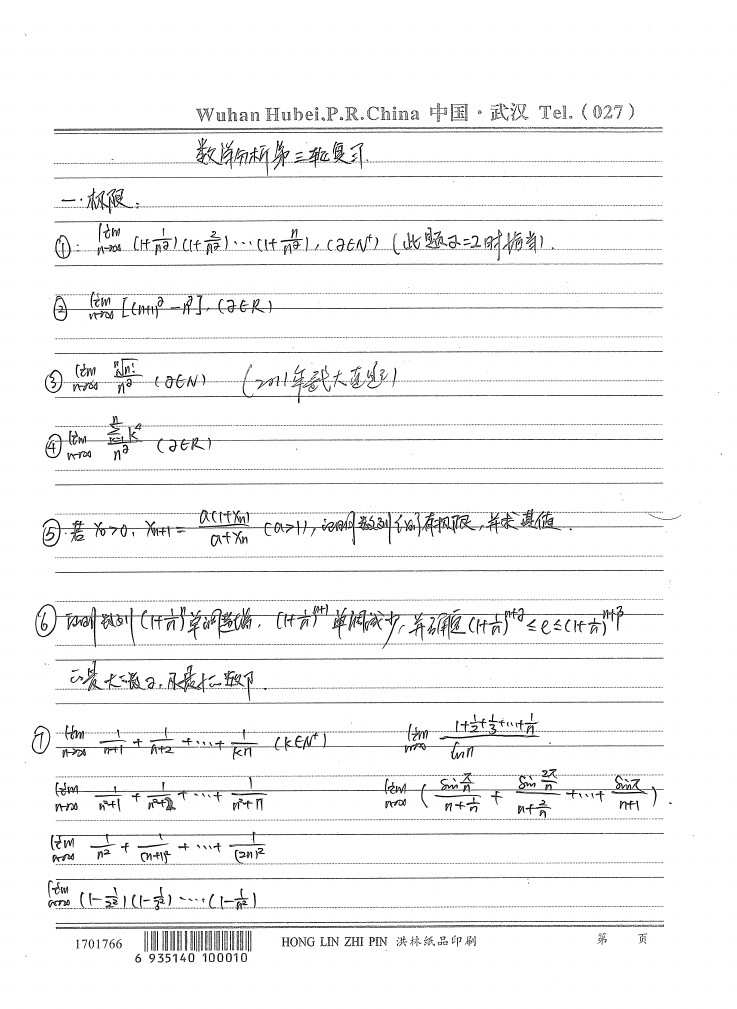 Wuhan Hubei.P.R.China 中国·武汉 Tel.(027)
数学分析第三轮复习.
一. 极限:
①: lim n→∞ (1+1/n^∂)(1+2/n^∂)···(1+n/n^∂), (∂∈N⁺) (此题∂=2时恰当).
② lim n→∞ [(n+1)^∂ - n^∂], (∂∈R)
③ lim n→∞ ⁿ√n! / n^∂ (∂∈N) (2011年武大真题)
④ lim n→∞ ∑_{k=1}^{n} k⁴ / n^∂ (∂∈R)
⑤. 若 x₀>0, x_{n+1} = a(1+x_n) / (a+x_n) (a>1), 证明数列{x_n}有极限, 并求其值.
⑥ 证明数列 (1+1/n)^n 单调递增, (1+1/n)^{n+1} 单调减少, 并确定 (1+1/n)^{n+∂} ≤ e ≤ (1+1/n)^{n+β}
的最大数∂, 及最小数β.
⑦ lim n→∞ 1/(n+1) + 1/(n+2) + ··· + 1/(kn) (k∈N⁺) lim n→∞ (1+1/2+1/3+···+1/n) / ln n
lim n→∞ 1/(n²+1) + 1/(n²+2) + ··· + 1/(n²+n) lim n→∞ ( sin(π/n) / (n+1/n) + sin(2π/n) / (n+2/n) + ··· + sinπ / (n+1) ).
lim n→∞ 1/n² + 1/(n+1)² + ··· + 1/(2n)²
lim n→∞ (1-1/2²)(1-1/3²)·····(1-1/n²)
1701766
6 935140 100010
HONG LIN ZHI PIN 洪林纸品印刷
第 页